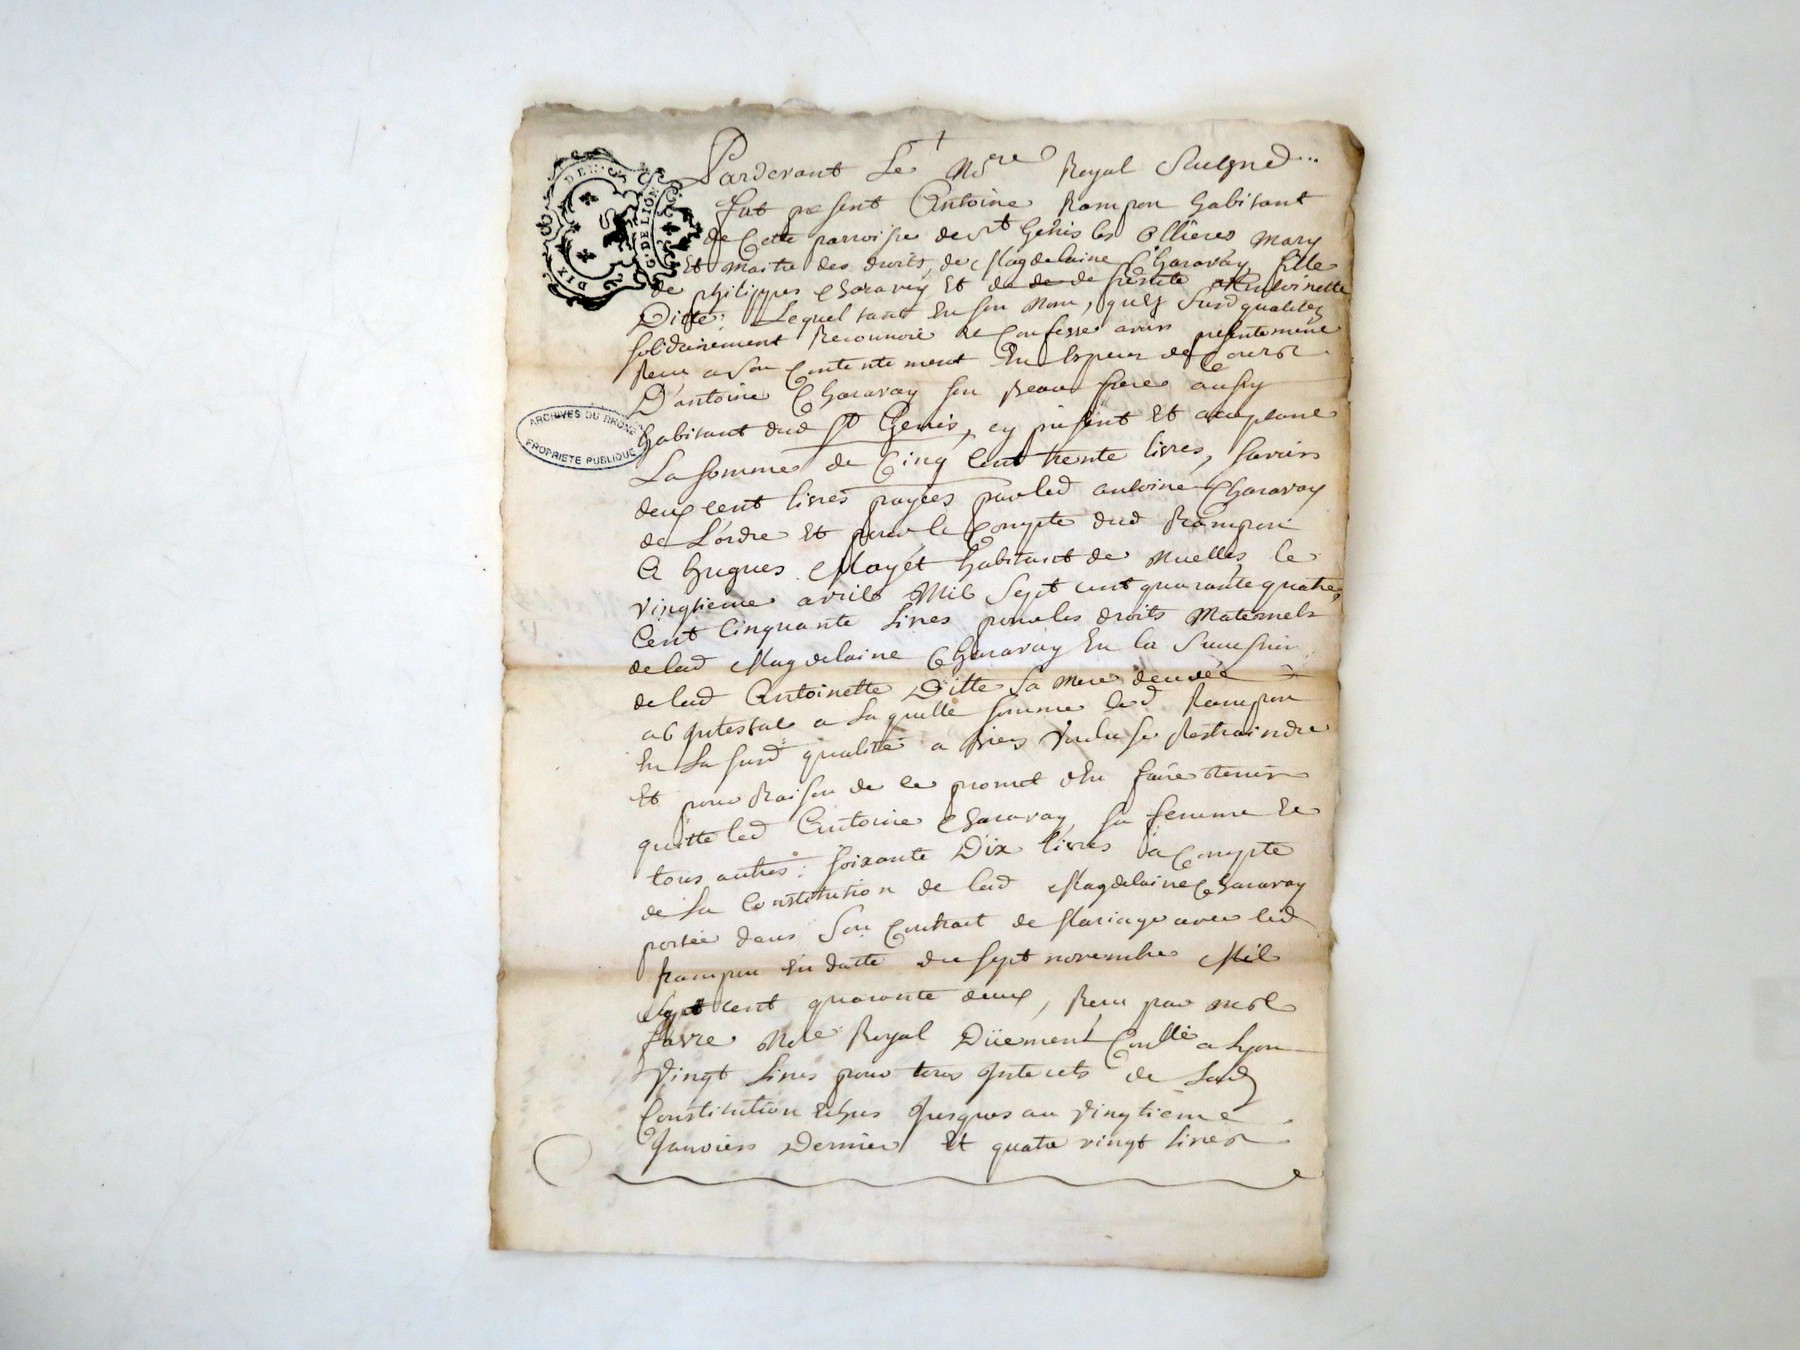 DIX DENIERS
G. DE LION
Pardevant Le No.re Royal Sousigné
fut present Antoine Rampon habitant
de Cette parroisse de St Genis les Ollieres Mary
Et Maitre des droits de Magdelaine Charavay fille
de philippes Charavay Et de Antoinette
Ditte; Lequel tant En son Nom, qu'en Susd qualitez
solidairement Reconnoit Et Confesse avoir presentement
Receu a son Contentement En Especes de Cours
D'antoine Charavay son Beau frere aussy
habitant dud St Genis, cy present Et acceptant
La somme de Cinq Cent trente livres, savoir
deux cent livres payées par led antoine Charavay
de L'ordre Et pour le Compte dud Rampon
A hugues Mayét habitant de Nuelles, le
vingtieme avril Mil Sept cent quarante quatre,
Cent Cinquante Livres pour les droits Maternels
de lad Magdelaine Charavay En la Succession
de lad Antoinette Ditte Sa Mere decedée
ab Intestat a Laquelle somme led Rampon
En La susd qualité a bien Voulu se Restraindre
Et pour Raison de ce promet d'En faire tenir
quitte led Antoine Charavay, sa femme Et
tous autres; soixante Dix livres a Compte
de La Constitution de lad Magdelaine Charavay
portée dans Son Contrait de Mariage avec led
Rampon En datte du sept novembre Mil
Sept cent quarante deux, Receu par
favre No.re Royal Düement Con.llé a Lyon
Vingt Livres pour tous Interets de Lad
Constitution Echus Jusques au Vingtieme
Janvier Dernier Et quatre vingt Livres
ARCHIVES DU RHONE
PROPRIETE PUBLIQUE